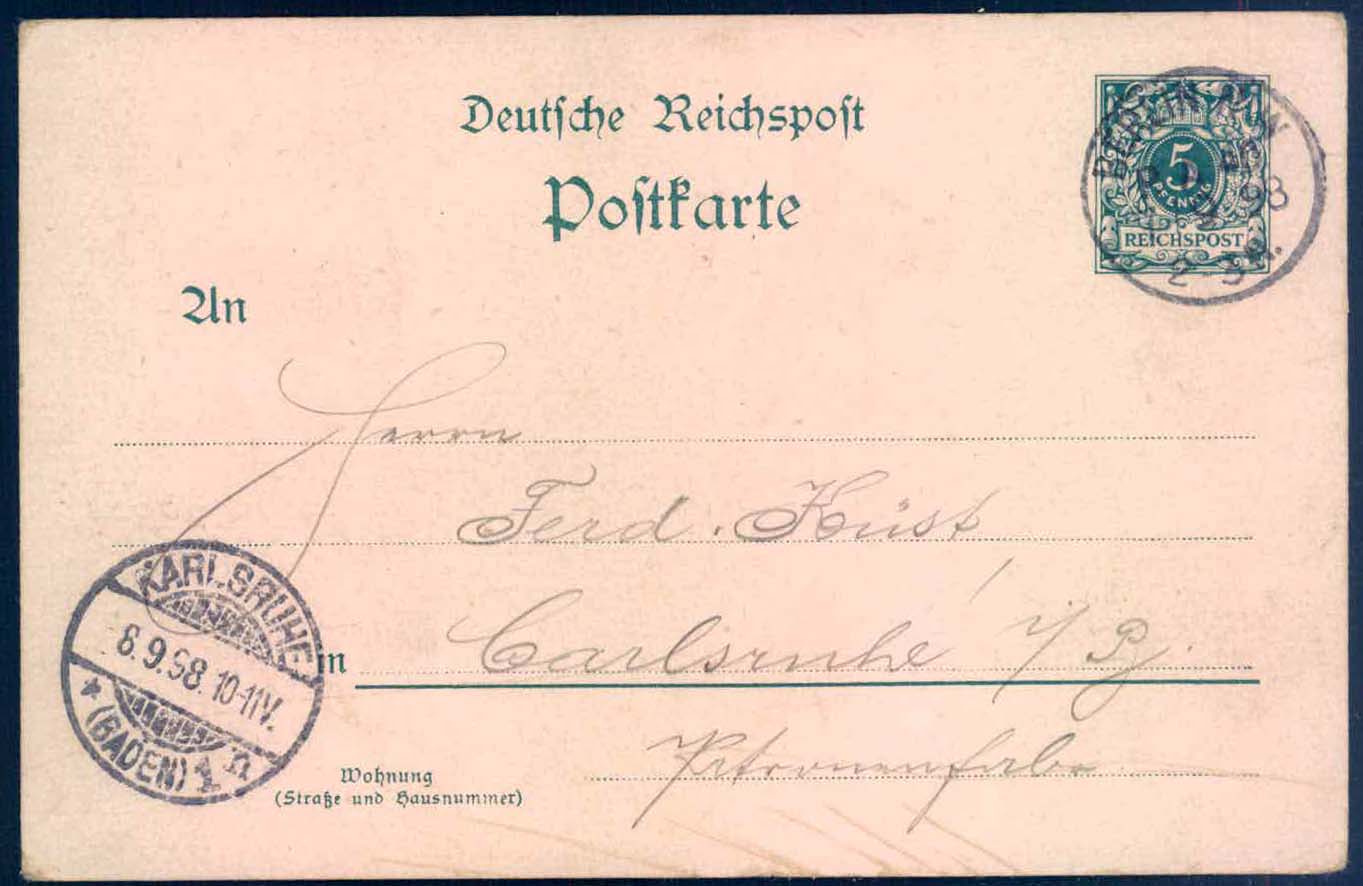 Deutsche Reichspost
Postkarte
5
PFENNIG
REICHSPOST
BERLIN W
98
2-3N.
An
Herrn
Ferd. Küst
Carlsruhe i/B.
in
KARLSRUHE
6.9.98. 10-11V.
(BADEN) 1 n
Wohnung
(Straße und Hausnummer)